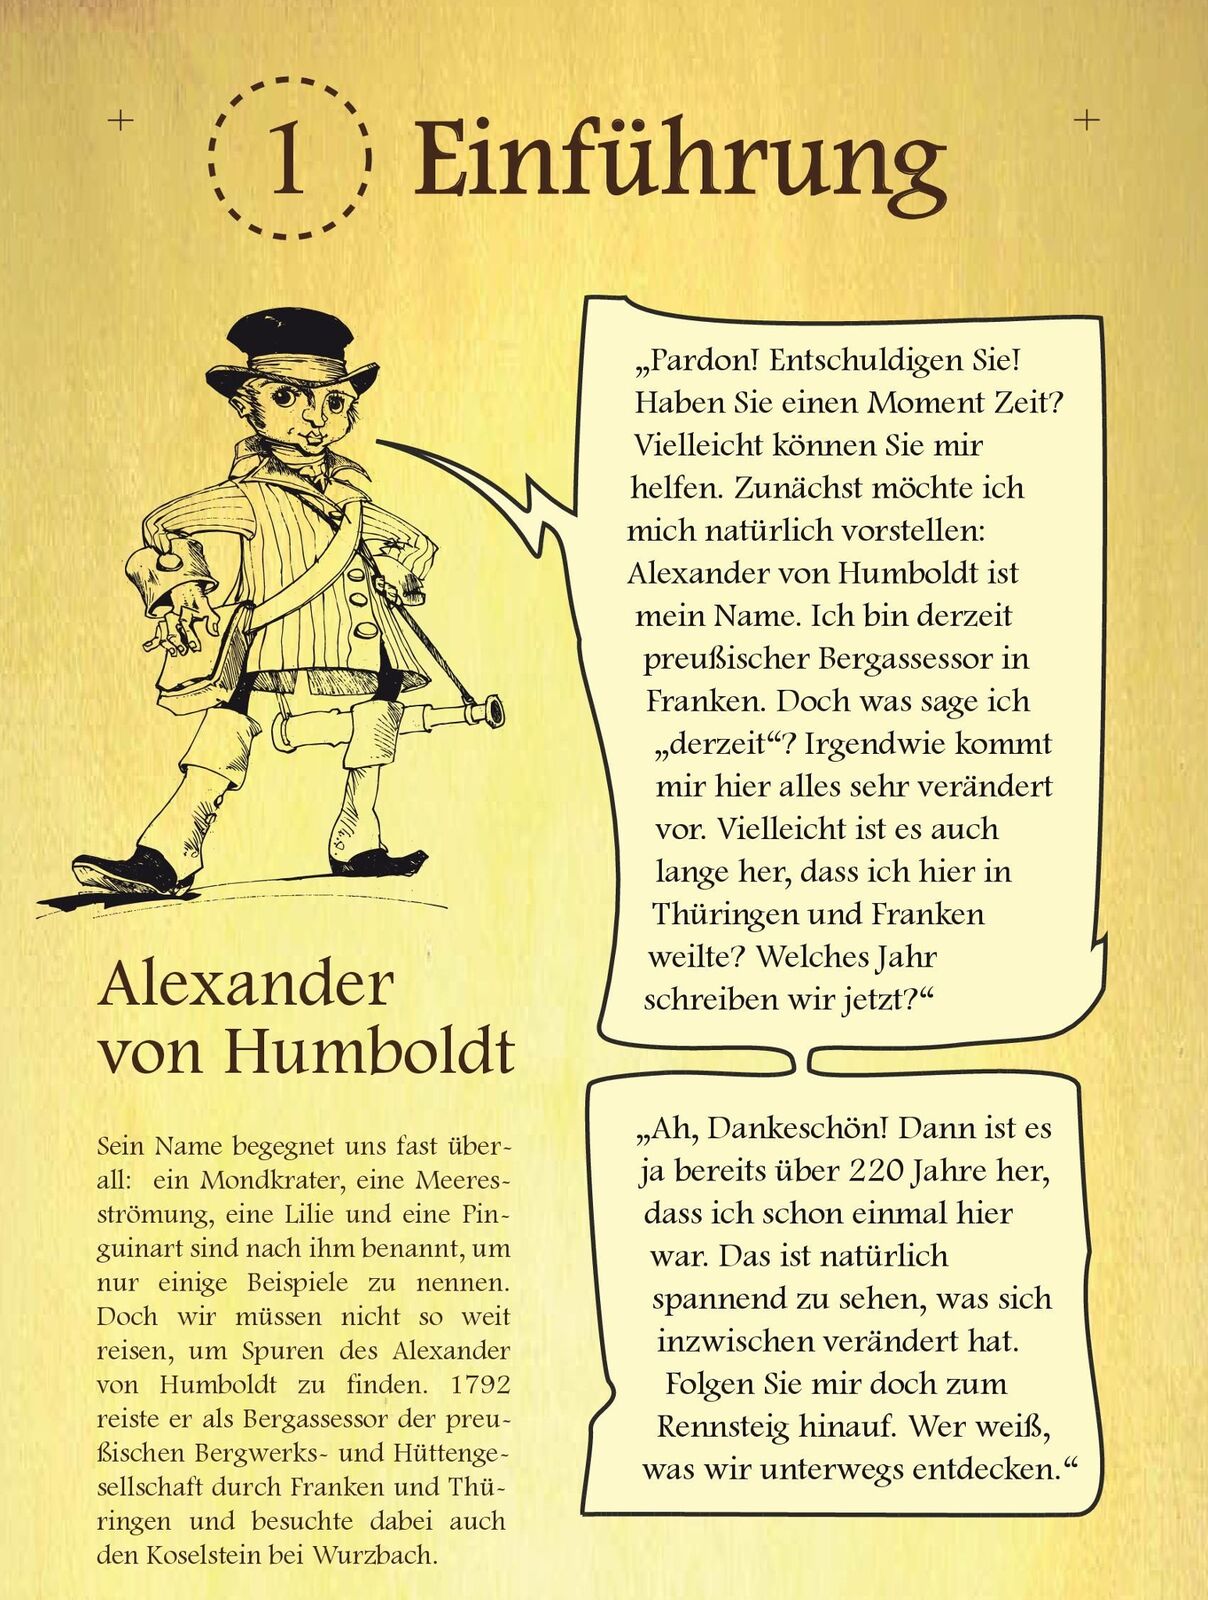 1 Einführung
„Pardon! Entschuldigen Sie!
Haben Sie einen Moment Zeit?
Vielleicht können Sie mir
helfen. Zunächst möchte ich
mich natürlich vorstellen:
Alexander von Humboldt ist
mein Name. Ich bin derzeit
preußischer Bergassessor in
Franken. Doch was sage ich
„derzeit“? Irgendwie kommt
mir hier alles sehr verändert
vor. Vielleicht ist es auch
lange her, dass ich hier in
Thüringen und Franken
weilte? Welches Jahr
schreiben wir jetzt?“
„Ah, Dankeschön! Dann ist es
ja bereits über 220 Jahre her,
dass ich schon einmal hier
war. Das ist natürlich
spannend zu sehen, was sich
inzwischen verändert hat.
Folgen Sie mir doch zum
Rennsteig hinauf. Wer weiß,
was wir unterwegs entdecken.“
Alexander
von Humboldt
Sein Name begegnet uns fast über-
all: ein Mondkrater, eine Meeres-
strömung, eine Lilie und eine Pin-
guinart sind nach ihm benannt, um
nur einige Beispiele zu nennen.
Doch wir müssen nicht so weit
reisen, um Spuren des Alexander
von Humboldt zu finden. 1792
reiste er als Bergassessor der preu-
ßischen Bergwerks- und Hüttenge-
sellschaft durch Franken und Thü-
ringen und besuchte dabei auch
den Koselstein bei Wurzbach.